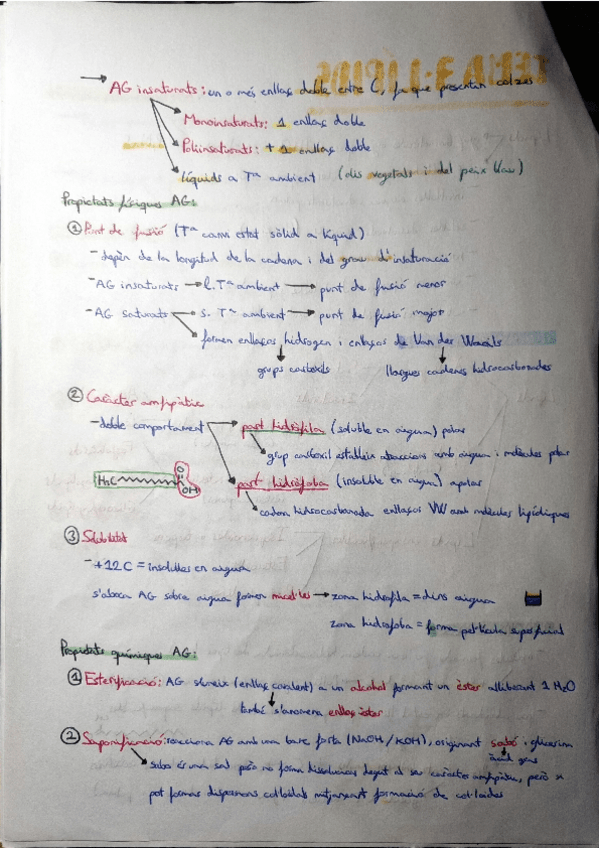 → AG insaturats: un o més enllaç doble entre C, fa que presentin colzes
Monoinsaturats: 1 enllaç doble
Poliinsaturats: + 1 enllaç doble
Líquids a Tª ambient (olis vegetals i del peix blau)
Propietats físiques AG:
① Punt de fusió (Tª canvi estat sòlid a líquid)
- depèn de la longitud de la cadena i del grau d'insaturació
- AG insaturats → l. Tª ambient → punt de fusió menor
- AG saturats → s. Tª ambient → punt de fusió major
formen enllaços hidrogen i enllaços de Van der Waals
grups carboxils llargues cadenes hidrocarbonades
② Caràcter amfipàtic
- doble comportament → part hidròfila (soluble en aigua) polar
grup carboxil estableix atraccions amb aigua i molècules polar
H₃C O OH
part hidròfoba (insoluble en aigua) apolar
cadena hidrocarbonada enllaços VW amb molècules lipídiques
③ Solubilitat
- +12C = insolubles en aigua
s'aboca AG sobre aigua formen micel·les → zona hidròfila = dins aigua
zona hidròfoba = forma pel·lícula superficial
Propietats químiques AG:
① Esterificació: AG s'uneix (enllaç covalent) a un alcohol formant un èster alliberant 1 H₂O
també s'anomena enllaç èster
② Saponificació: reacciona AG amb una base forta (NaOH / KOH), originant sabó i glicerina
àcid gras
sabó és una sal però no forma dissolucions degut al seu caràcter amfipàtic, però x
pot formar dispersions col·loidals mitjançant formació de col·loides